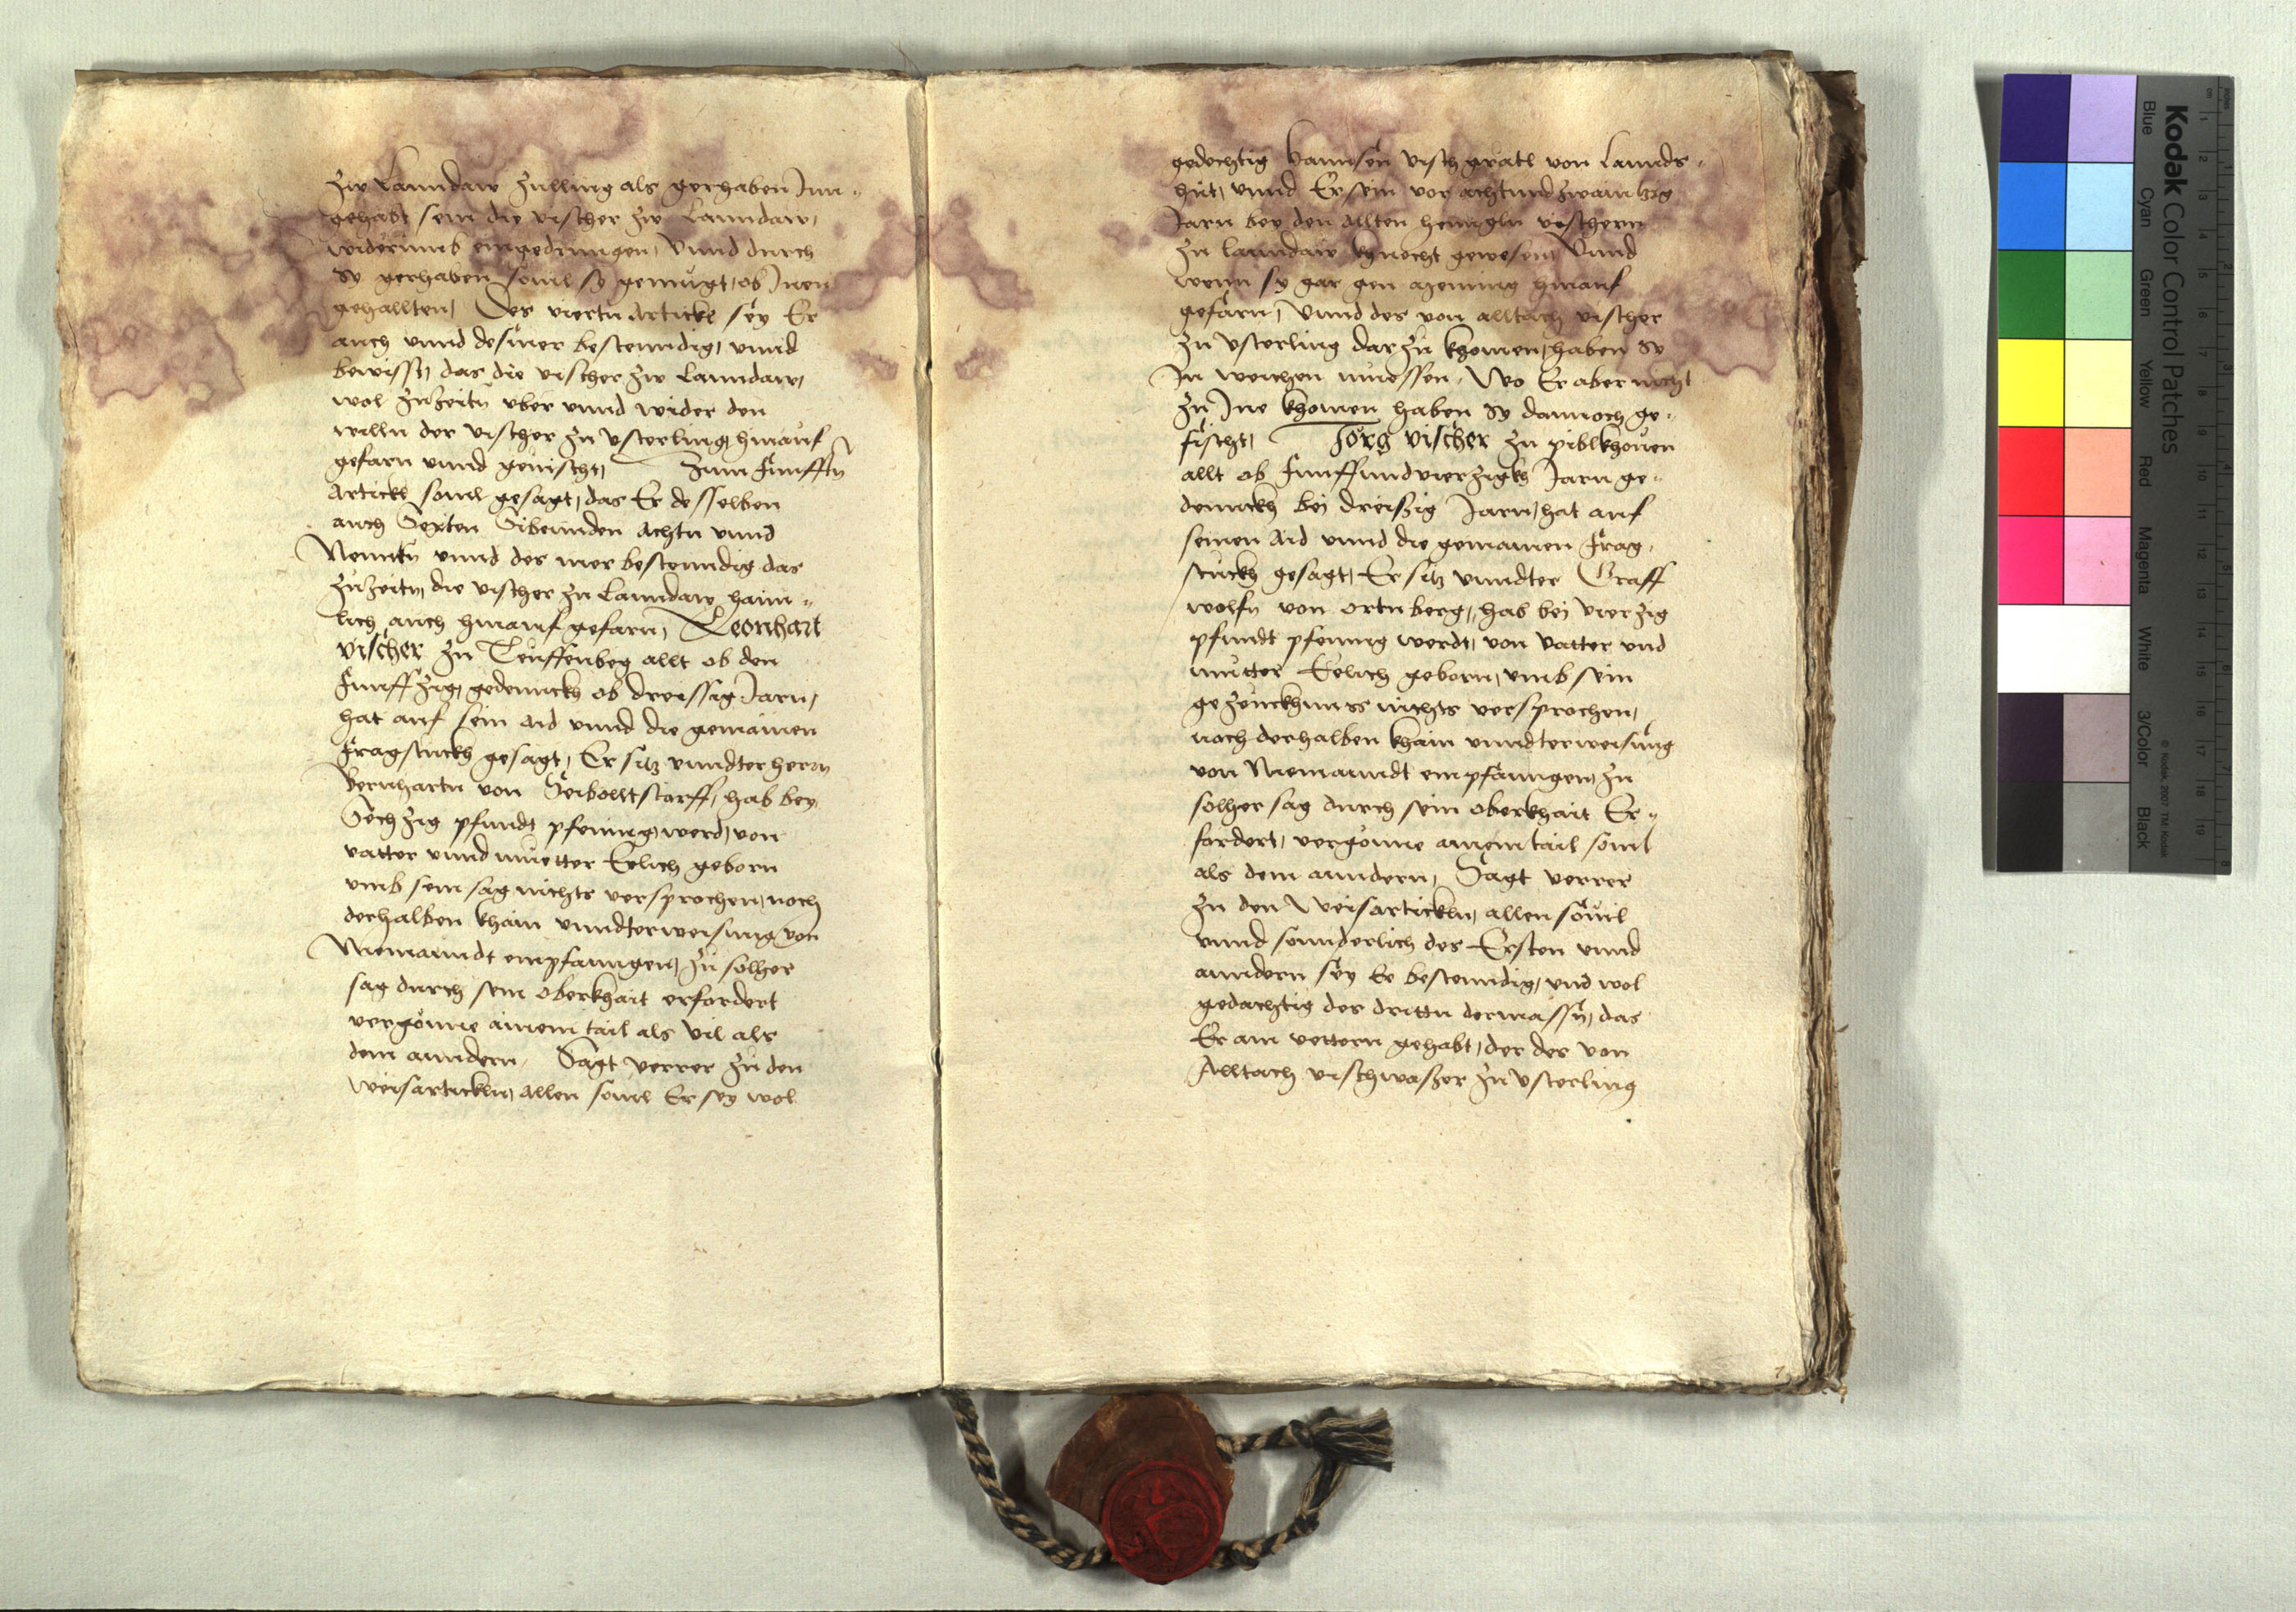 zw Lanndaw Zulling als gerhaben Inn„
gehabt sein die vischer zw Lanndaw,
widerumb eingedrungen, Vnnd durch
Sy gerhaben souil sy gemügt, ob Inen
gehallten, Des viertn Artickl sey Er
auch vnnd des mer bestenndig, vnnd
bewisst, das die vischer zw Lanndaw,
wol zuzeitn vber vnnd wider den
willn der vischer zu Vsterling, hinauf
gefarn vnnd geuischt, Zum Funfftn
Artickl souil gesagt, das Er desselben
auch Sexten Sibennden Achtn vnnd
Nenntn vnnd des mer bestenndig das
zuzeitn, die vischer zu Lanndaw haim„
lich auch hinauf gefarn, Leonhart
vischer zu Teuffenbeg allt ob den
Funffzig, gedennckh ob dreissig Jarn,
hat auf sein Aid vnnd die gemainen
Fragstuckh gesagt, Er sitz vnndter herrn
Bernhartn von Seiboltstorff, hab bey
Sechzig pfundt pfennig, werd, von
vatter vnnd muetter Eelich geborn
vmb sein sag nichts versprochen, noch
derhalben khain vnndterweisung von
Niemanndt empfanngen, zu solher
sag durch sein Oberkhait erfordert
vergönne ainem tail als vil als
dem anndern, Sagt verrer zu den
weisarticklnn, allen souil Er sey wol
gedechtig Hannsen vischgratl von Lannds„
hut, vnnd Er sein vor achtundzwaintzig
Jarn bey den Allten henngln vischern
zu Lanndaw khnecht gewesen, Vnnd
wenn sy gar gen Meming hinauf
gefarn, Vnnd des von Alltach vischer
zu Vsterling darzu khomen, haben Sy
In weichen muessen, Wo Er aber nicht
zu Ine khomen haben Sy dannoch ge„
fischt, Jörg vischer zu piblkhouen
allt ob Funffundvierzigkh Jarn ge„
dennckh bei dreiszig Jarn, hat auf
seinen Aid vnnd die gemainen Frag„
stuckh gesagt, Er sitz vnndter Graff
wolfn von Ortnberg, hab bei vierzig
pfundt pfennig werdt, von vatter vnd
mutter Eelich geborn, vmb sein
gezeuckhnuss nichts versprochen,
noch derhalben khain vnndterweisung
von Niemanndt empfanngen, zu
solher sag durch sein Oberkhait Er„
fordert, vergönne ainem tail souil
als dem anndern, Sagt verrer
zu den Weisarticklnn, allen souil
vnnd sonnderlich des Ersten vnnd
anndern sey Er bestenndig, vnd wol
gedachtig des drittn dermassn, das
Er ain vettern gehabt, der des von
Alltach vischwaszer zu Vsterling
7
Kodak Color Control Patches
Blue
Cyan
Green
Yellow
Red
Magenta
White
3/Color
Black
© Kodak, 2007 TM: Kodak